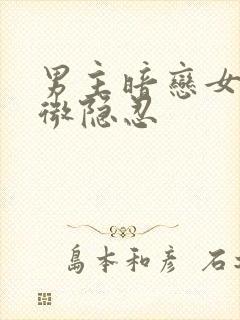 男主暗戀女
微隐忍
島本和彦 石